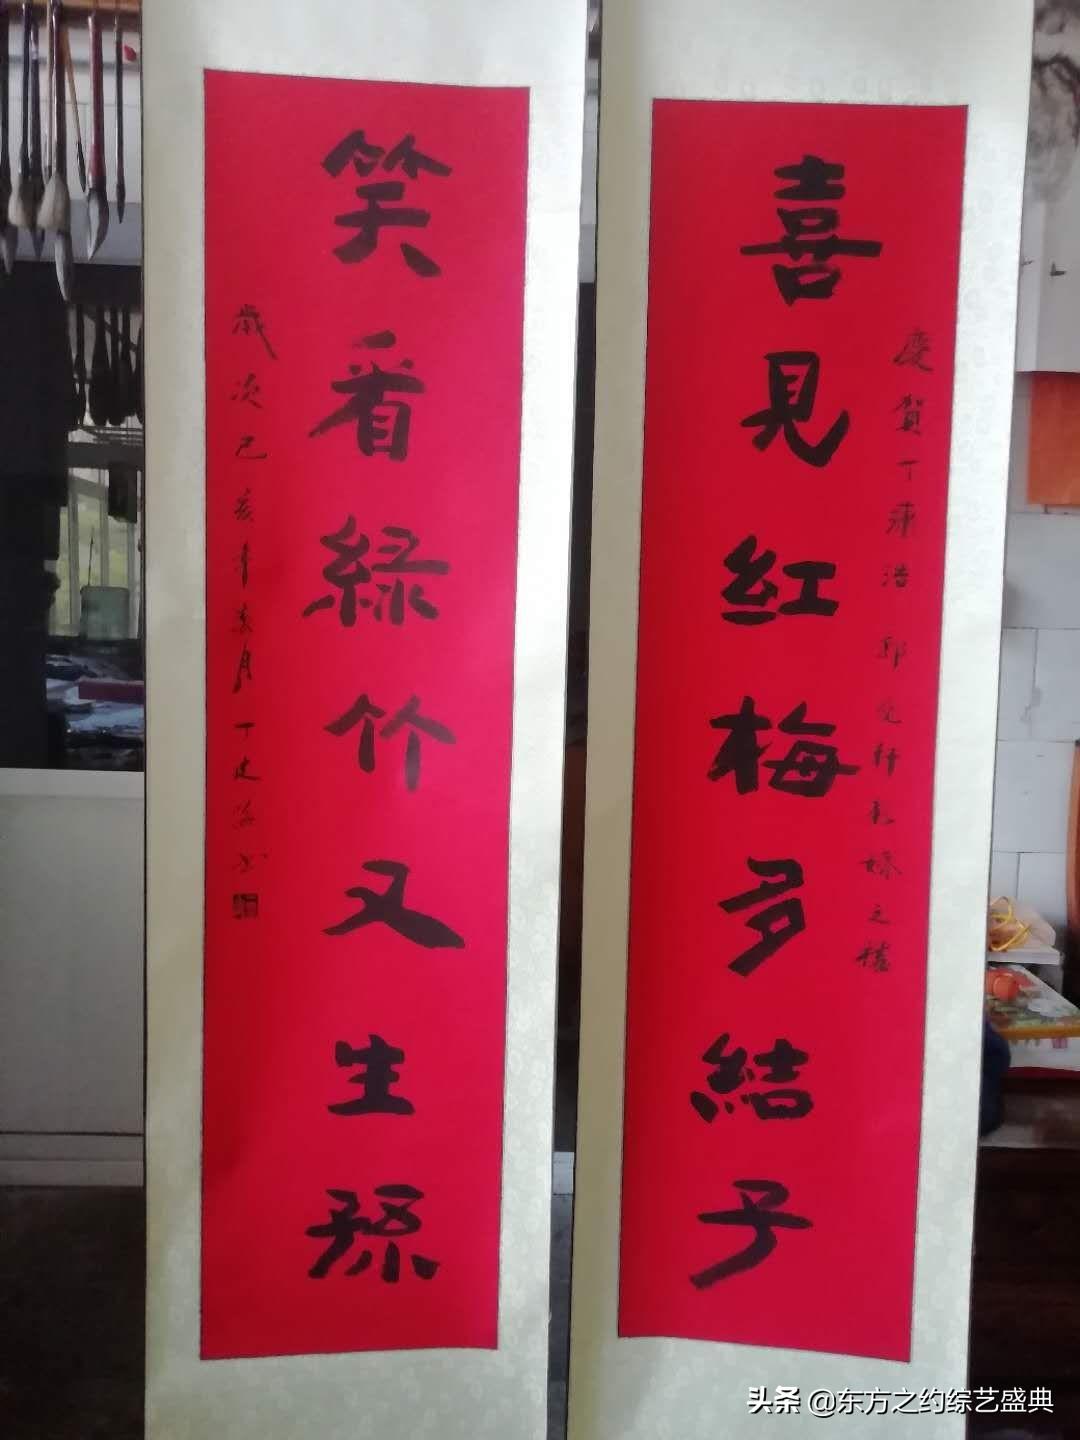 喜見红梅多結子
慶賀丁 浩 新婚之禧
笑看綠竹又生孫
歲次己亥年 月丁建 书
头条 @东方之约综艺盛典